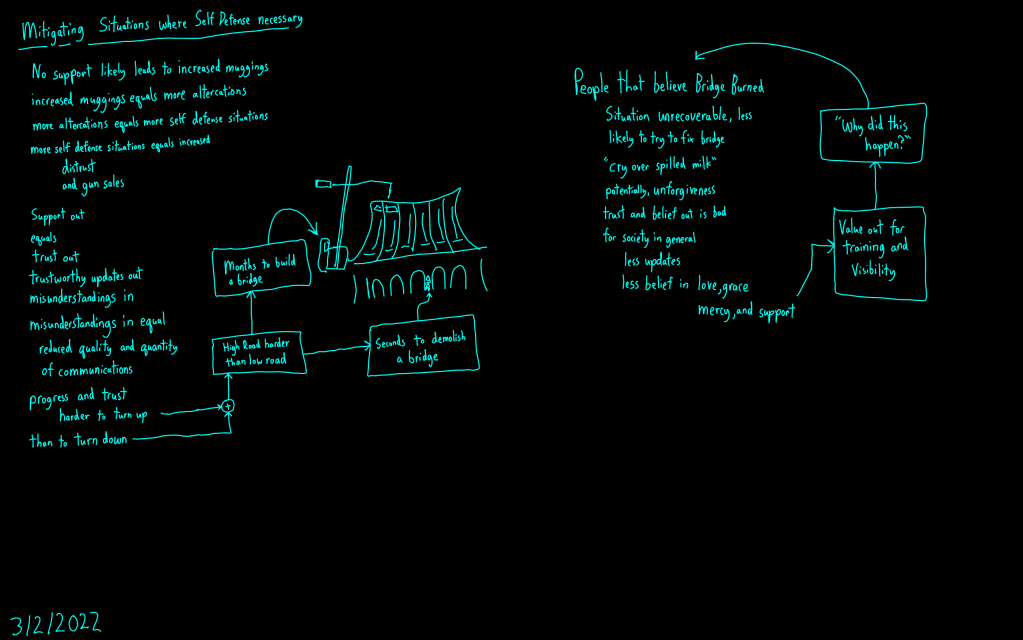 Mitigating Situations where Self Defense necessary
No support likely leads to increased muggings
increased muggings equals more altercations
more altercations equals more self defense situations
more self defense situations equals increased
distrust
and gun sales
Support out
equals
trust out
trustworthy updates out
misunderstandings in
misunderstandings in equal
reduced quality and quantity
of communications
progress and trust
harder to turn up
than to turn down
+
High Road harder
than low road
Months to build
a bridge
Seconds to demolish
a bridge
People that believe Bridge Burned
Situation unrecoverable, less
likely to try to fix bridge
"cry over spilled milk"
potentially, unforgiveness
trust and belief out is bad
for society in general
less updates
less belief in love, grace
mercy, and support
"Why did this
happen?"
Value out for
training and
Visibility
3/2/2022